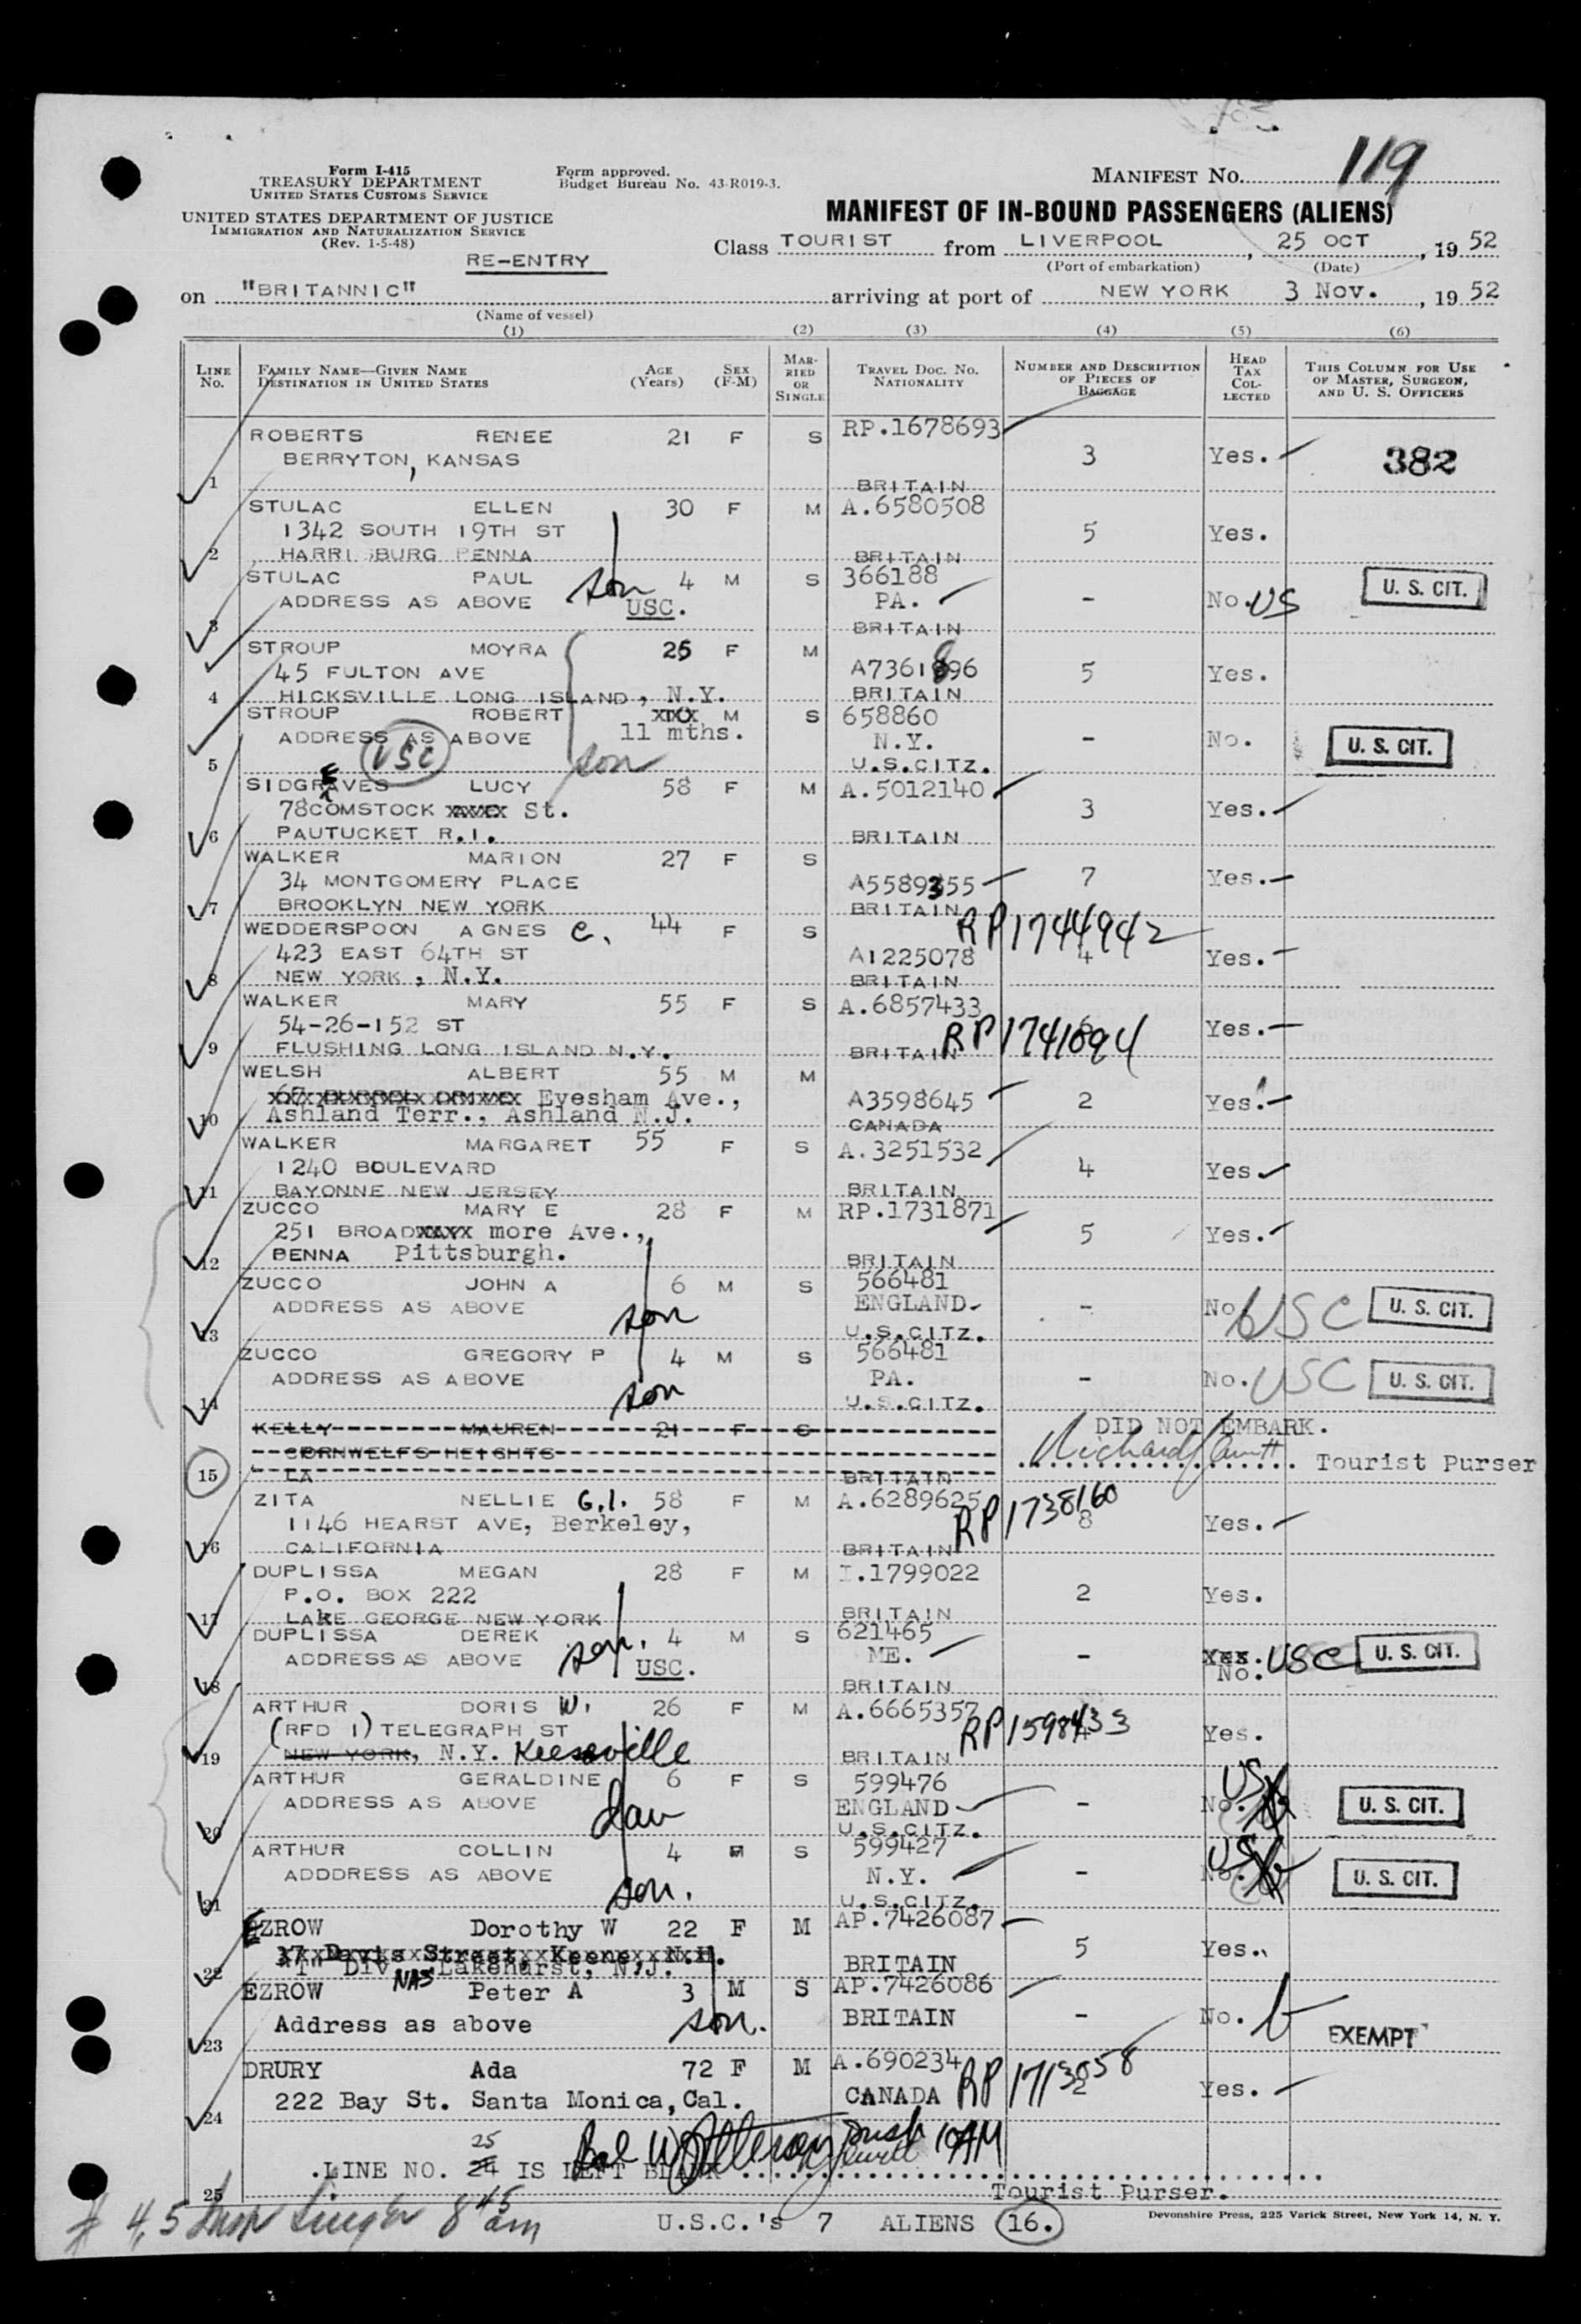 Form I-415
TREASURY DEPARTMENT
UNITED STATES CUSTOMS SERVICE
UNITED STATES DEPARTMENT OF JUSTICE
IMMIGRATION AND NATURALIZATION SERVICE
(Rev. 1-5-48)
Form approved.
Budget Bureau No. 43-R019-3.
MANIFEST NO. 119
MANIFEST OF IN-BOUND PASSENGERS (ALIENS)
RE-ENTRY
Class TOURIST from LIVERPOOL, 25 OCT, 19 52
(Port of embarkation) (Date)
on "BRITANNIC" arriving at port of NEW YORK 3 Nov., 19 52
(Name of vessel)
(1) (2) (3) (4) (5) (6)
LINE No. FAMILY NAME—GIVEN NAME DESTINATION IN UNITED STATES AGE (Years) SEX (F-M) MARRIED OR SINGLE TRAVEL DOC. NO. NATIONALITY NUMBER AND DESCRIPTION OF PIECES OF BAGGAGE HEAD TAX COLLECTED THIS COLUMN FOR USE OF MASTER, SURGEON, AND U. S. OFFICERS
ROBERTS RENEE 21 F S RP.1678693
BERRYTON, KANSAS 3 Yes. 382
1 BRITAIN
STULAC ELLEN 30 F M A.6580508
1342 SOUTH 19TH ST 5 Yes.
2 HARRISBURG PENNA BRITAIN
STULAC PAUL son 4 M S 366188 U. S. CIT.
ADDRESS AS ABOVE USC. PA. - No. US
3 BRITAIN
STROUP MOYRA 25 F M
45 FULTON AVE A7361896 5 Yes.
4 HICKSVILLE LONG ISLAND, N.Y. BRITAIN
STROUP ROBERT xxx M S 658860
ADDRESS AS ABOVE 11 mths. N.Y. - No. U. S. CIT.
5 USC son U.S.CITZ.
SIDGREAVES LUCY 58 F M A.5012140
78 COMSTOCK xAVEx St. 3 Yes.
6 PAUTUCKET R.I. BRITAIN
WALKER MARION 27 F S
34 MONTGOMERY PLACE A5589355 7 Yes.
7 BROOKLYN NEW YORK BRITAIN
WEDDERSPOON AGNES C. 44 F S RP1744942
423 EAST 64TH ST A1225078 4 Yes.
8 NEW YORK, N.Y. BRITAIN
WALKER MARY 55 F S A.6857433
54-26-152 ST Yes.
9 FLUSHING LONG ISLAND N.Y. BRITAIN RP1741894
WELSH ALBERT 55 M M
Evesham Ave., A3598645 2 Yes.
10 Ashland Terr., Ashland N.J. CANADA
WALKER MARGARET 55 F S A.3251532
1240 BOULEVARD 4 Yes
11 BAYONNE NEW JERSEY BRITAIN
ZUCCO MARY E 28 F M RP.1731871
251 BROADxxxx more Ave., 5 Yes.
12 PENNA Pittsburgh. BRITAIN
ZUCCO JOHN A 6 M S 566481
ADDRESS AS ABOVE son ENGLAND - No USC U. S. CIT.
13 U.S.CITZ.
ZUCCO GREGORY P 4 M S 566481
ADDRESS AS ABOVE son PA. - No. USC U. S. CIT.
14 U.S.CITZ.
KELLY MAUREN 21 F S DID NOT EMBARK.
CORNWELFS HEIGHTS
15 LA BRITAIN Tourist Purser
ZITA NELLIE G.I. 58 F M A.6289625 RP1738160
1146 HEARST AVE, Berkeley, 8 Yes.
16 CALIFORNIA BRITAIN
DUPLISSA MEGAN 28 F M I.1799022
P.O. BOX 222 2 Yes.
17 LAKE GEORGE NEW YORK BRITAIN
DUPLISSA DEREK son. 4 M S 621465
ADDRESS AS ABOVE USC. ME. - Yes. No. USC U. S. CIT.
18 BRITAIN
ARTHUR DORIS W. 26 F M A.6665357 RP1598433
(RFD 1) TELEGRAPH ST Yes.
19 NEW YORK, N.Y. Keeseville BRITAIN
ARTHUR GERALDINE 6 F S 599476
ADDRESS AS ABOVE dau ENGLAND - No. U. S. CIT.
20 U.S.CITZ.
ARTHUR COLLIN 4 M S 599427
ADDDRESS AS ABOVE son. N.Y. - No. U. S. CIT.
21 U.S.CITZ.
EZROW Dorothy W 22 F M AP.7426087
17 Davis Street, Keene, N.H. 5 Yes.
22 "T" Div. NAS Lakehurst, N.J. BRITAIN
EZROW Peter A 3 M S AP.7426086
Address as above son. BRITAIN - No. EXEMPT
23
DRURY Ada 72 F M A.690234
222 Bay St. Santa Monica, Cal. CANADA RP1713858 2 Yes.
24
LINE NO. 24 25 IS LEFT BLANK 10AM
25 Tourist Purser.
# 4,5 8 45 am U.S.C.'s 7 ALIENS 16.
Devonshire Press, 225 Varick Street, New York 14, N. Y.